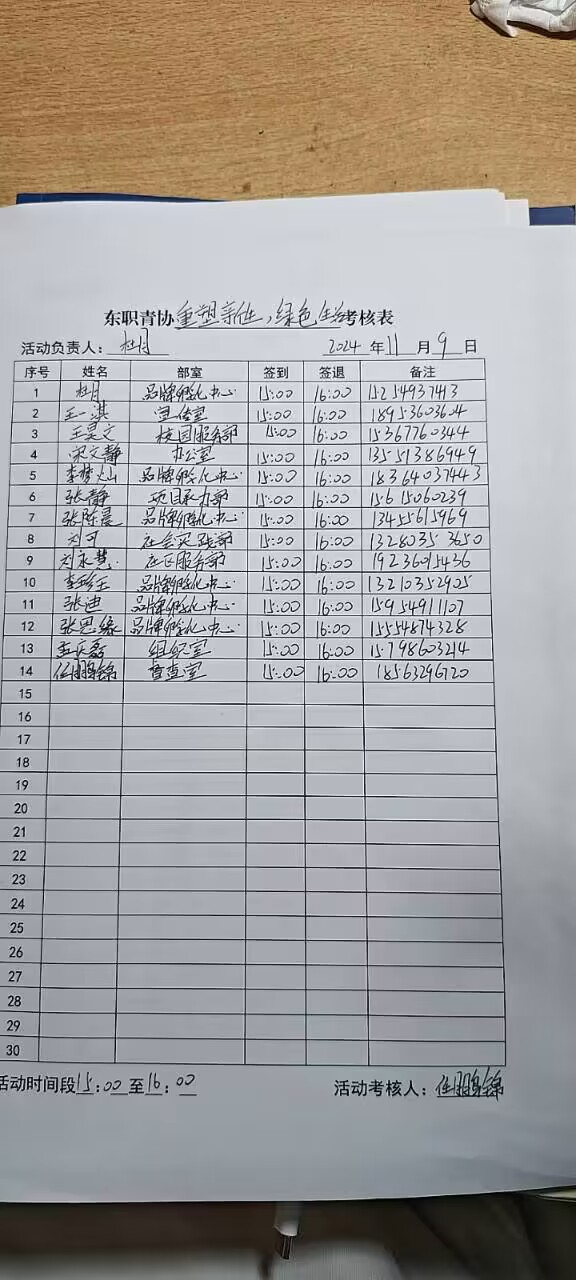 东职青协重塑新生,绿色生考核表
活动负责人：杜月 2024 年 11 月 9 日
序号 姓名 部室 签到 签退 备注
1 杜月 品牌孵化中心 15:00 16:00 15254937413
2 王一淇 宣传室 15:00 16:00 18953603604
3 王昊文 校园服务部 15:00 16:00 15367760344
4 宋文静 办公室 15:00 16:00 13551386949
5 李梦灿 品牌孵化中心 15:00 16:00 18364037443
6 张静 项目承办部 15:00 16:00 15615060239
7 张陈晨 品牌孵化中心 15:00 16:00 13455615969
8 刘可 社会实践部 15:00 16:00 13280353650
9 刘永慧 社区服务部 15:00 16:00 19236015436
10 品牌孵化中心 15:00 16:00 13210352905
11 张迪 品牌孵化中心 15:00 16:00 15954911107
12 张思缘 品牌孵化中心 15:00 16:00 15554874328
13 孟庆磊 组织室 15:00 16:00 15798603214
14 任鹏锦 督查室 15:00 16:00 18563296720
15
16
17
18
19
20
21
22
23
24
25
26
27
28
29
30
活动时间段15:00至16:00 活动考核人：任鹏锦